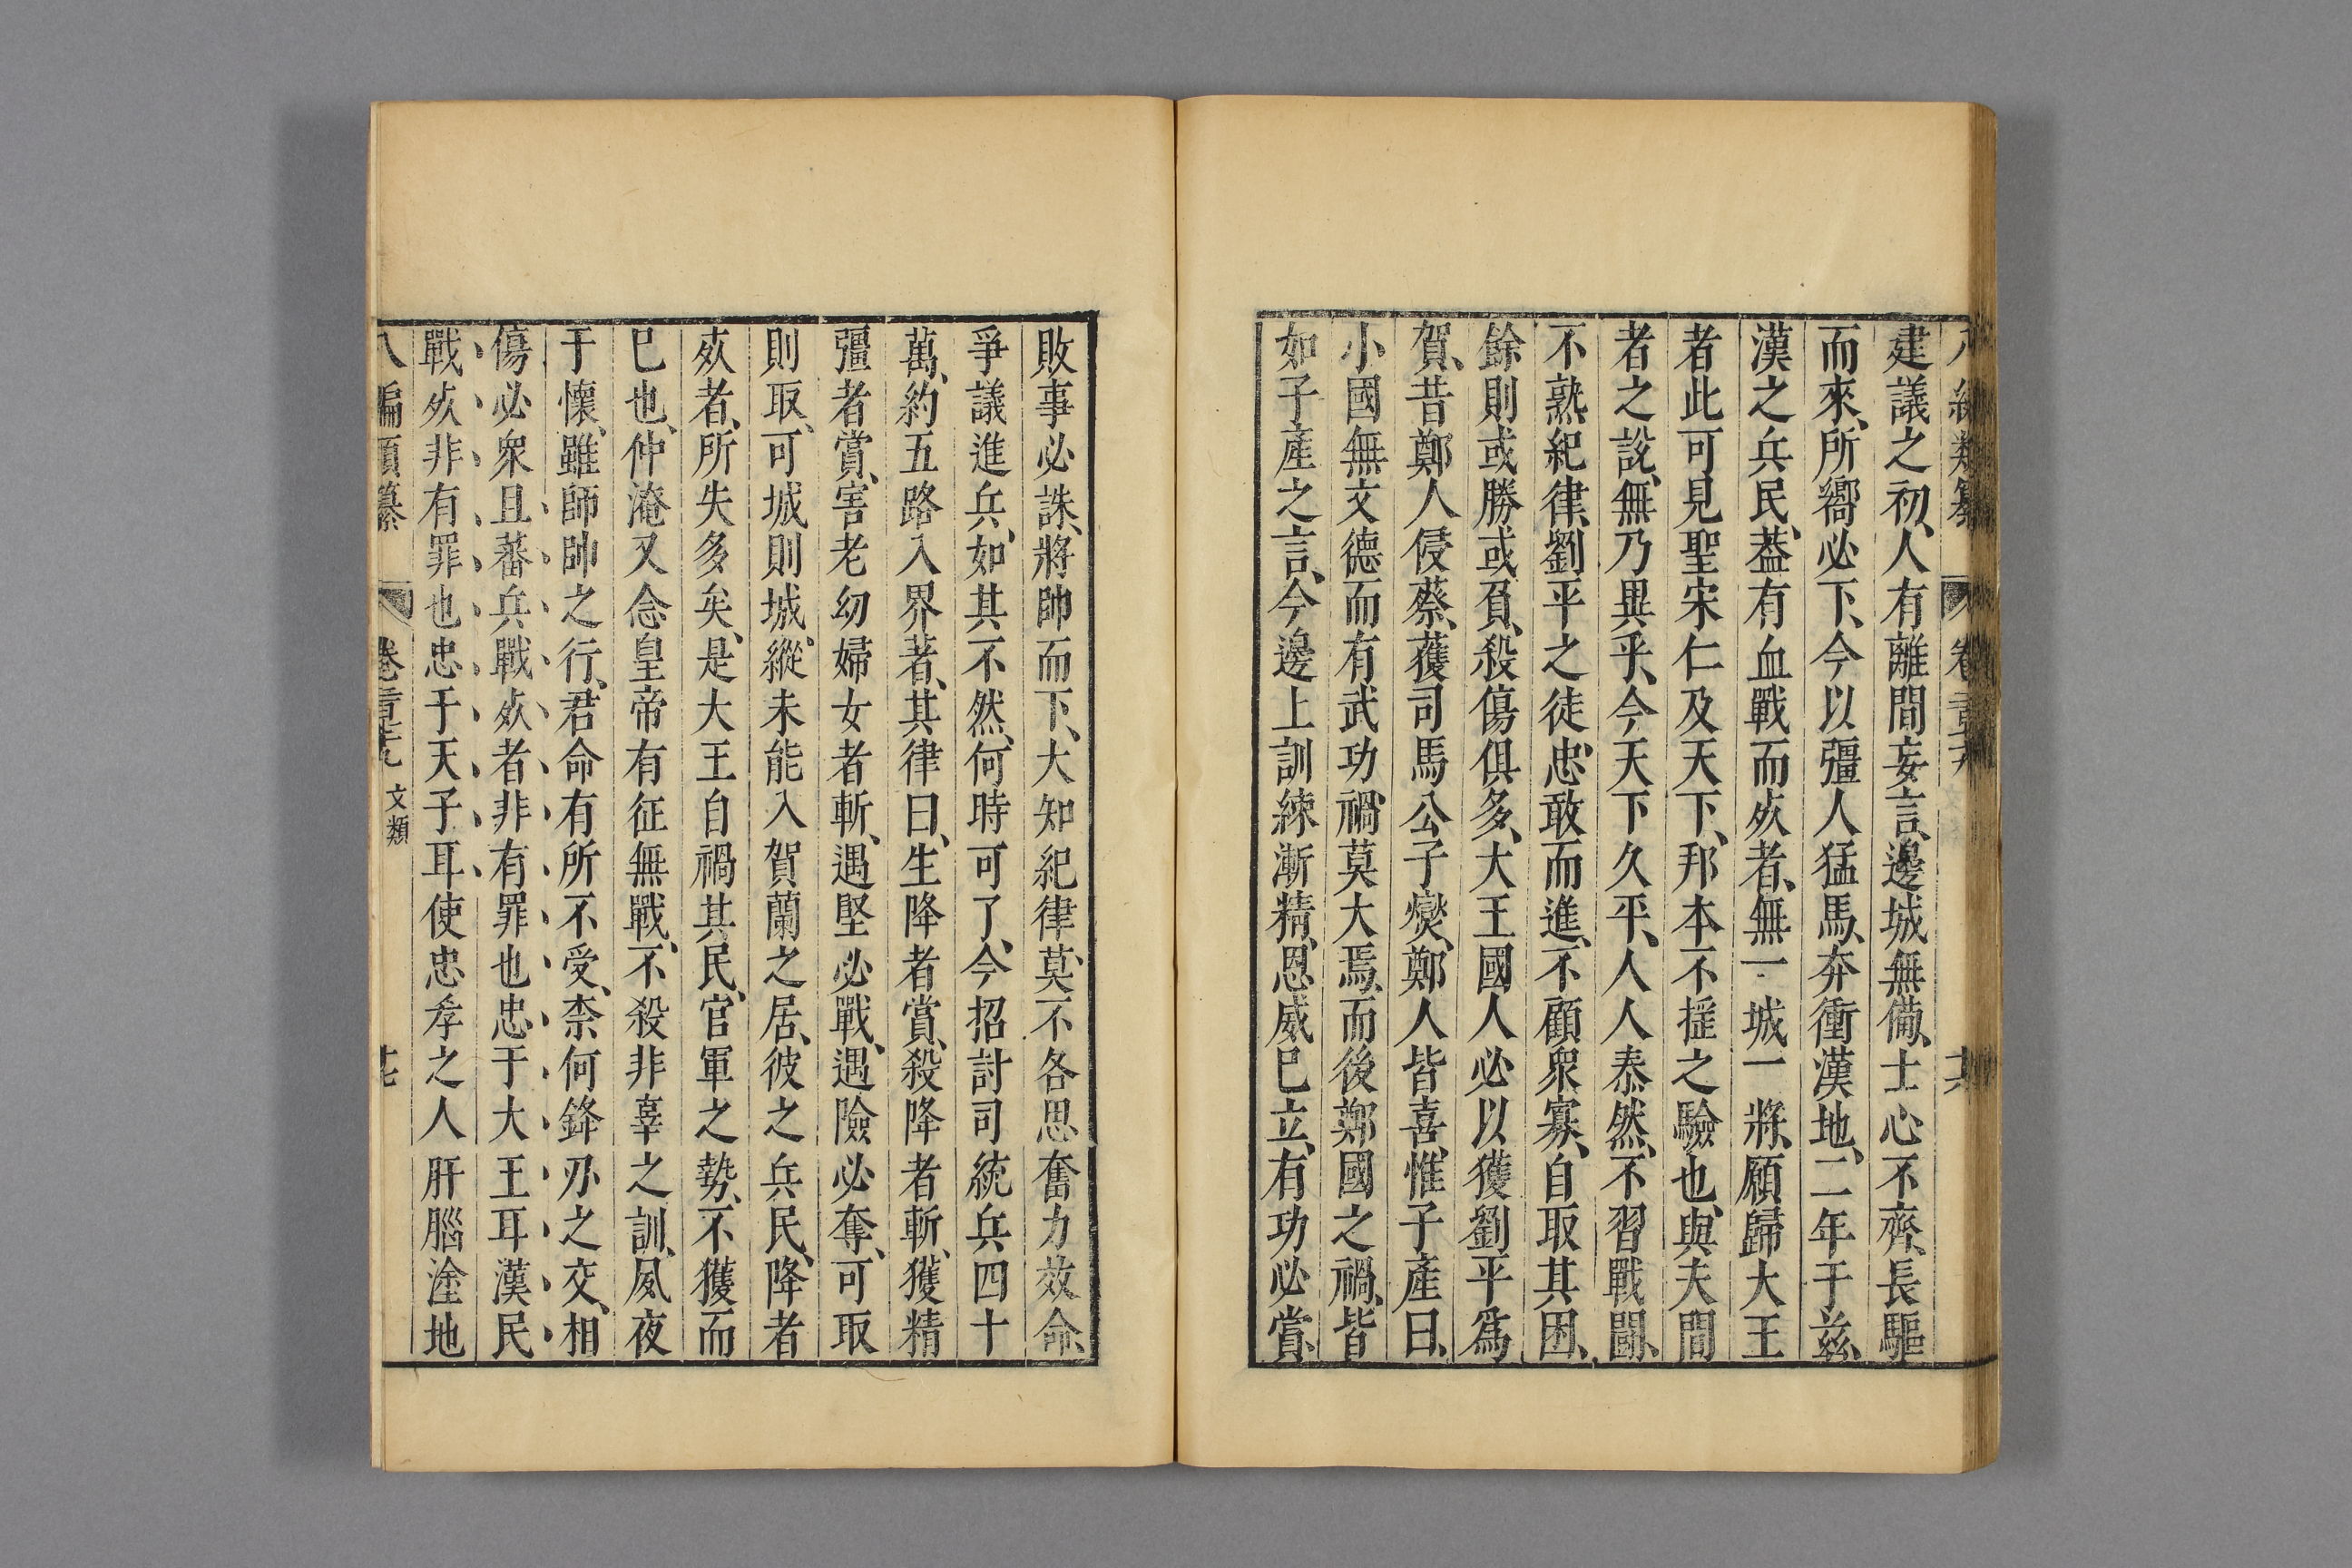 建議之初、人有離間妄言、邊城無備、士心不齊、長驅
而來、所嚮必下、今以彊人猛馬、奔衝漢地、二年于兹、
漢之兵民、葢有血戰而歿者、無一城一將、願歸大王
者此可見聖宋仁及天下、邦本不搖之驗也、與夫間
者之說、無乃異乎、今天下久平、人人泰然、不習戰鬪、
不熟紀律、劉平之徒、忠敢而進、不顧衆寡、自取其困、
餘則或勝或負、殺傷俱多、大王國人必以獲劉平爲
賀、昔鄭人侵蔡、獲司馬公子燮、鄭人皆喜、惟子產曰、
小國無文德而有武功、禍莫大焉、而後鄭國之禍、皆
如子產之言、今邊上訓練漸精、恩威巳立、有功必賞、
敗事必誅、將帥而下、大知紀律、莫不各思奮力效命、
爭議進兵、如其不然、何時可了、今招討司統兵四十
萬、約五路入界著、其律曰、生降者賞、殺降者斬、獲精
彊者賞、害老幼婦女者斬、遇堅必戰、遇險必奪、可取
則取、可城則城、縱未能入賀蘭之居、彼之兵民、降者
歿者、所失多矣、是大王自禍其民、官軍之勢、不獲而
巳也、仲淹又念皇帝有征無戰、不殺非辜之訓、夙夜
于懷、雖師帥之行、君命有所不受、柰何鋒刃之交、相
傷必衆且蕃兵戰歿者非有罪也忠于大王耳漢民
戰歿非有罪也忠于天子耳使忠孝之人肝腦塗地
八編類纂 文類